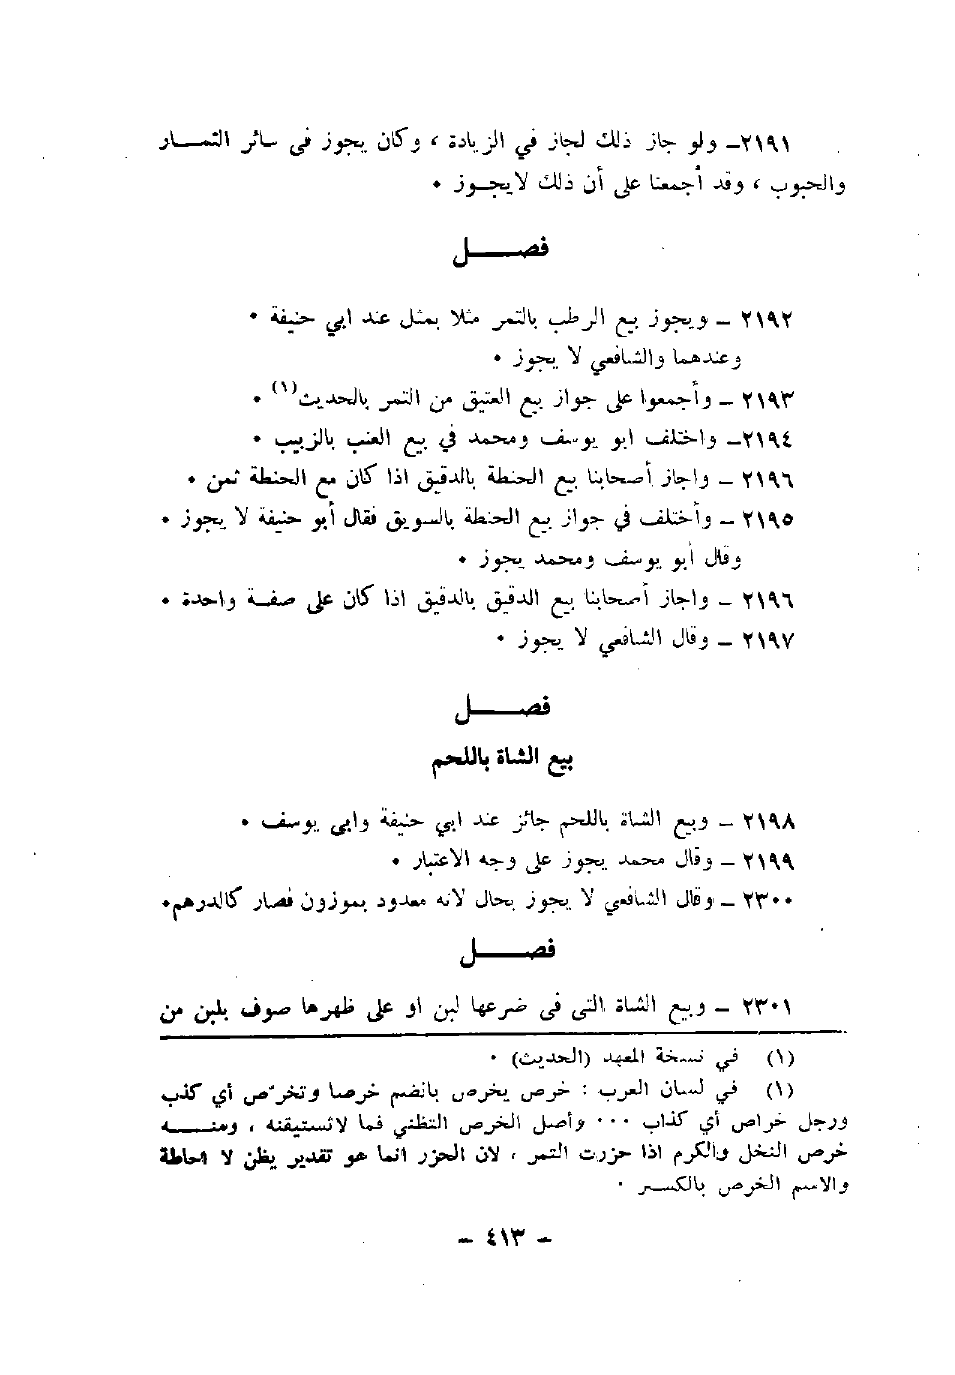 ٢١٩١ـ ولو جاز ذلك لجاز في الزيادة ، وكان يجوز في سائر الثمـــار
والحبوب ، وقد أجمعنا على أن ذلك لايجــوز ٠
فصـــــل
٢١٩٢ ـ ويجوز بيع الرطب بالتمر مثلا بمثل عند ابي حنيفة ٠
وعندهما والشافعي لا يجوز ٠
٢١٩٣ ـ وأجمعوا على جواز بيع العتيق من التمر بالحديث(١) ٠
٢١٩٤ـ واختلف ابو يوسف ومحمد في بيع العنب بالزبيب ٠
٢١٩٦ ـ واجاز أصحابنا بيع الحنطة بالدقيق اذا كان مع الحنطة ثمن ٠
٢١٩٥ ـ وأختلف في جواز بيع الحنطة بالسويق فقال أبو حنيفة لا يجوز ٠
وقال أبو يوسف ومحمد يجوز ٠
٢١٩٦ ـ واجاز أصحابنا بيع الدقيق بالدقيق اذا كان على صفـة واحدة ٠
٢١٩٧ ـ وقال الشافعي لا يجوز ٠
فصـــــل
بيع الشاة باللحم
٢١٩٨ ـ وبيع الشاة باللحم جائز عند ابي حنيفة وابي يوسف ٠
٢١٩٩ ـ وقال محمد يجوز على وجه الاعتبار ٠
٢٣٠٠ ـ وقال الشافعي لا يجوز بحال لانه معدود بموزون فصار كالدرهم٠
فصـــــل
٢٣٠١ ـ وبيع الشاة التي في ضرعها لبن او على ظهرها صوف بلبن من
(١) في نسخة المعهد (الحديث) ٠
(١) في لسان العرب : خرص يخرص بالضم خرصا وتخرّص أي كذب
ورجل خراص أي كذاب ٠٠٠ وأصل الخرص التظني فما لاتستيقنه ، ومنـــه
خرص النخل والكرم اذا حزرت التمر ، لان الحزر انما هو تقدير بظن لا احاطة
والاسم الخرص بالكسـر ٠
ـ ٤١٣ ـ